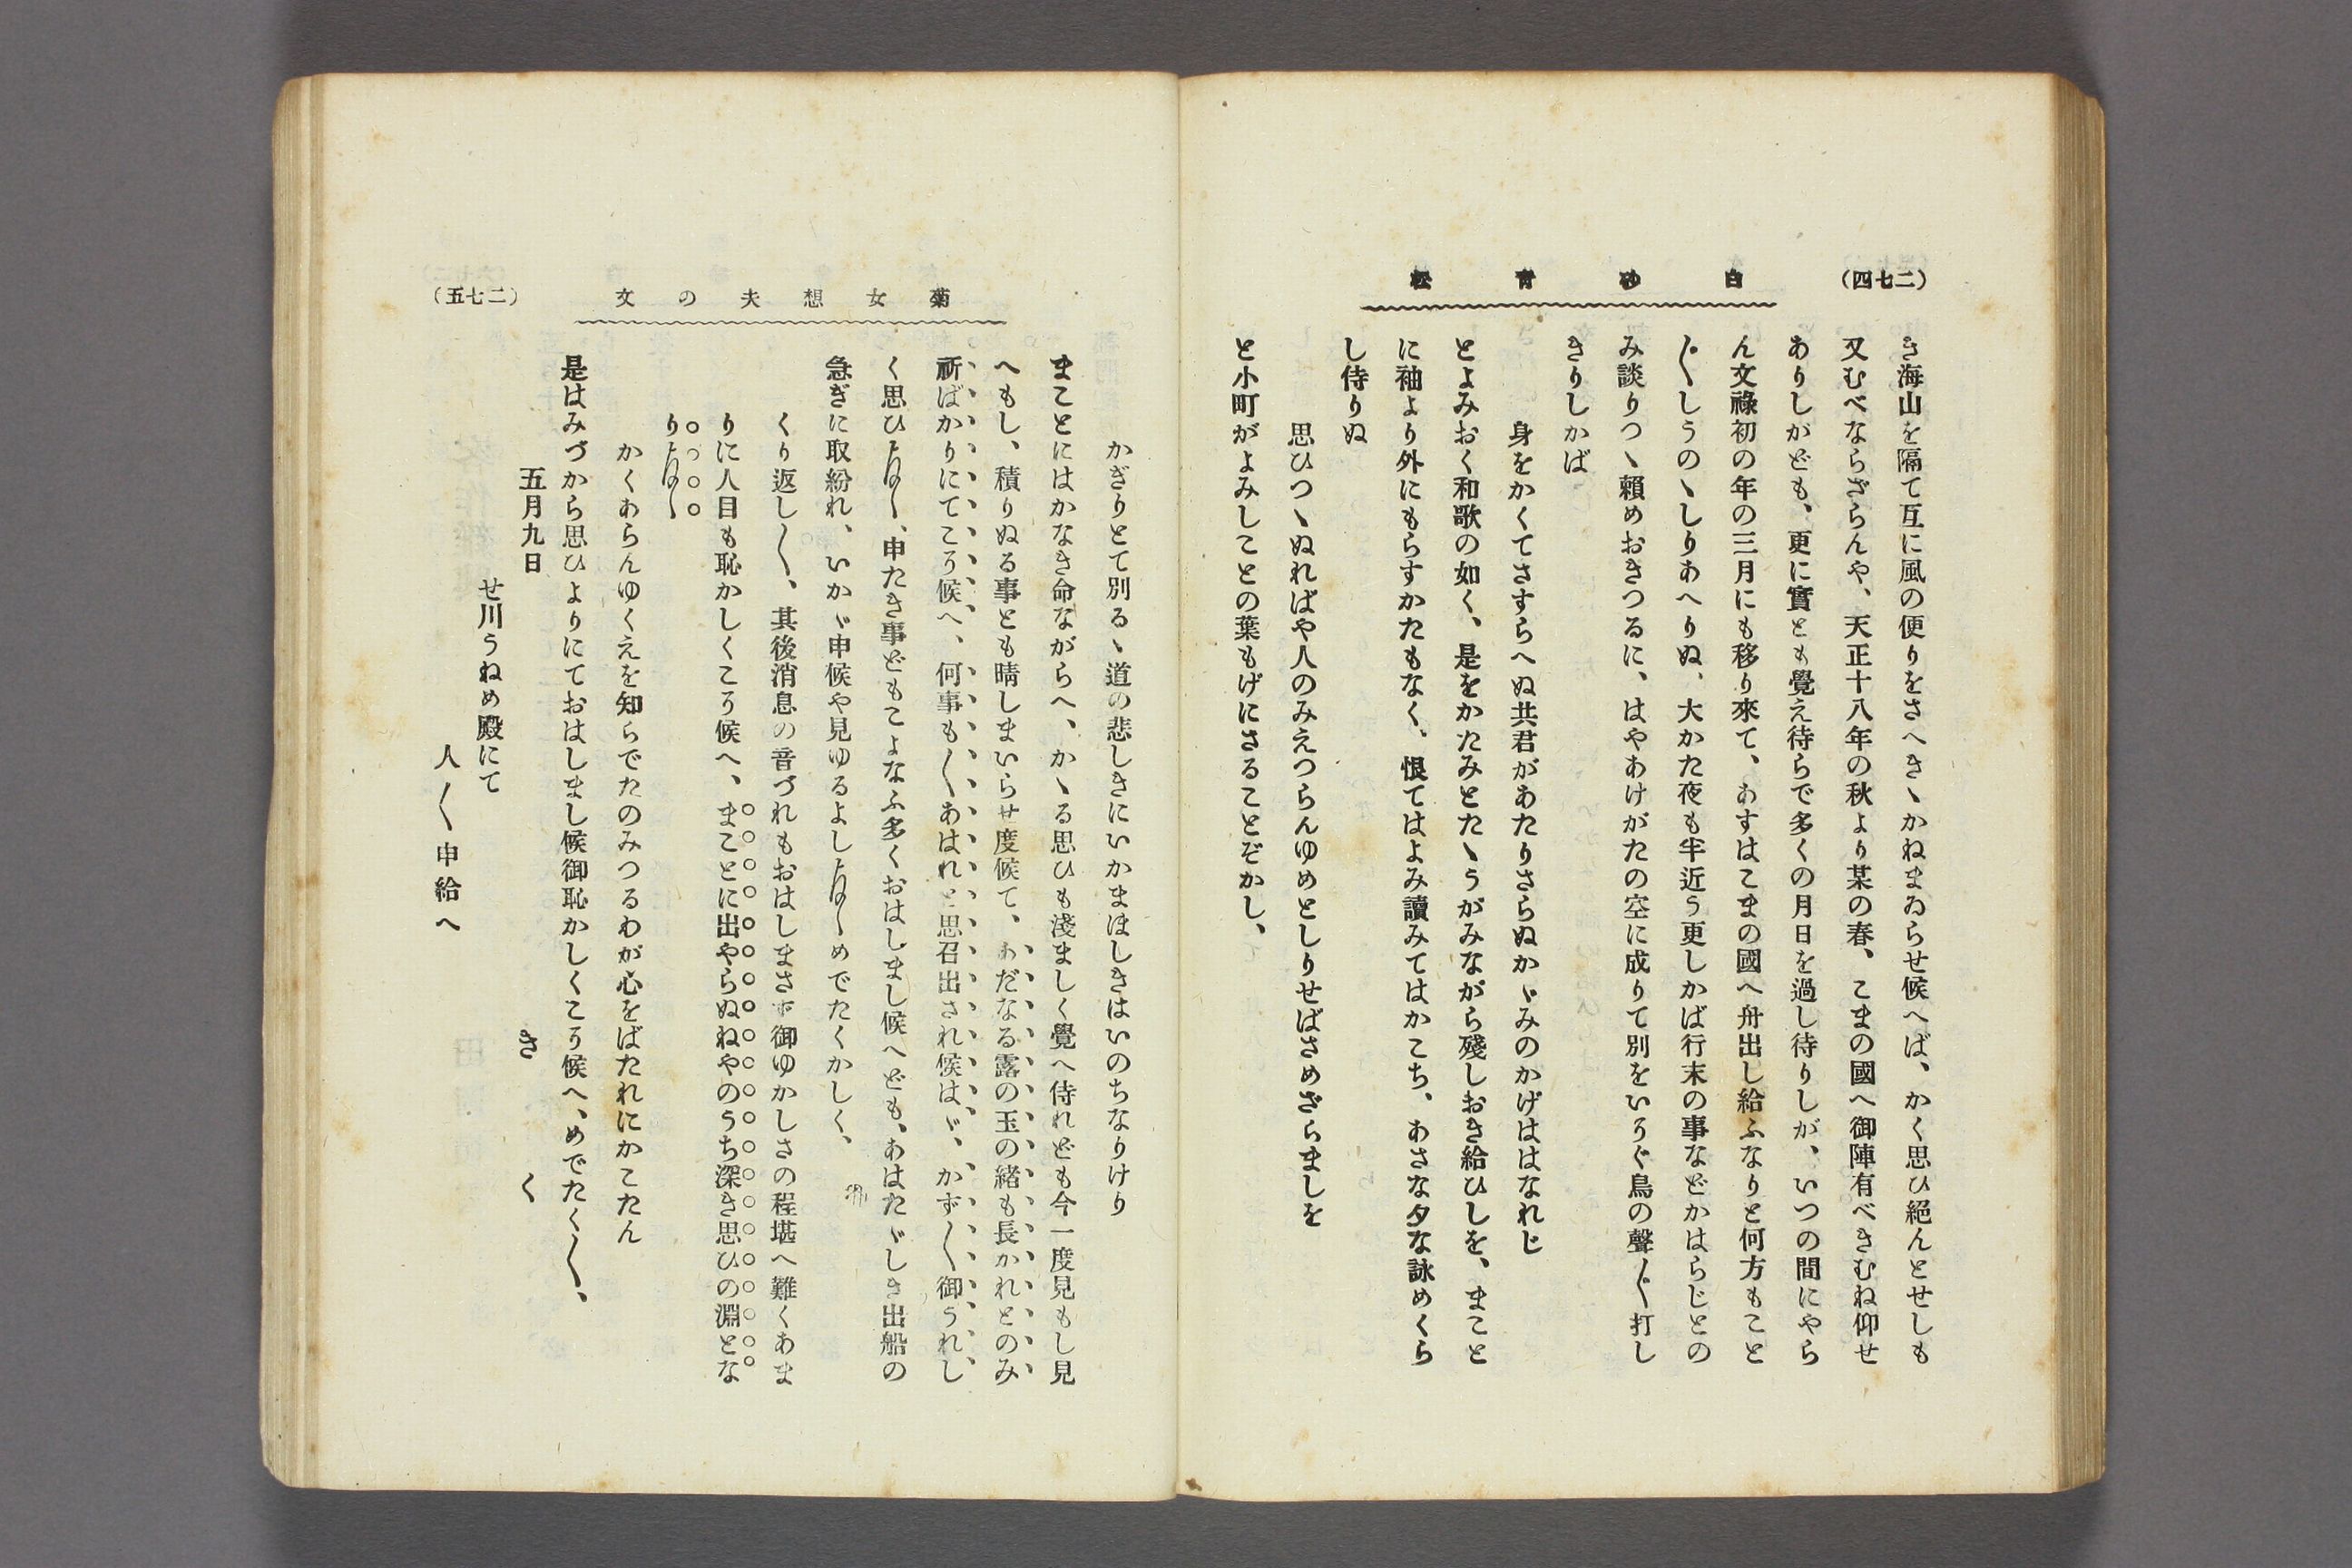 (二七四)
白砂青松
き海山を隔て互に風の便りをさへきゝかねまゐらせ候へば、かく思ひ絕んとせしも
又むべならざらんや、天正十八年の秋より某の春、こまの國へ御陣有べきむね仰せ
ありしがども、更に實とも覺え待らで多くの月日を過し待りしが、いつの間にやら
ん文祿初の年の三月にも移り來て、あすはこまの國へ舟出し給ふなりと何方もこと
〴〵しうのゝしりあへりぬ、大かた夜も半近う更しかば行末の事などかはらじとの
み談りつゝ賴めおきつるに、はやあけがたの空に成りて別をいそぐ鳥の聲〴〵打し
きりしかば
身をかくてさすらへぬ共君があたりさらぬかゞみのかげははなれじ
とよみおく和歌の如く、是をかたみとたゝうがみながら殘しおき給ひしを、まこと
に袖より外にもらすかたもなく、恨てはよみ讀みてはかこち、あさな夕な詠めくら
し侍りぬ
思ひつゝぬればや人のみえつらんゆめとしりせばさめざらましを
と小町がよみしことの葉もげにさることぞかし、
(二七五)
菊女想夫の文
かぎりとて別るゝ道の悲しきにいかまほしきはいのちなりけり
まことにはかなき命ながらへ、かゝる思ひも淺ましく覺へ侍れども今一度見もし見
へもし、積りぬる事とも晴しまいらせ度候て、あだなる露の玉の緒も長かれとのみ
祈ばかりにてこそ候へ、何事も〳〵あはれと思召出され候はゞ、かず〳〵御うれし
く思ひまゐらせ候、申たき事どもこよなふ多くおはしまし候へども、あはたゞしき出船の
急ぎに取紛れ、いかゞ申候や見ゆるよしまゐらせ候めでたくかしく、
くり返し〳〵、其後消息の音づれもおはしまさず御ゆかしさの程堪へ難くあま
りに人目も恥かしくこそ候へ、まことに出やらぬねやのうち深き思ひの淵とな
りまゐらせ候
かくあらんゆくえを知らでたのみつるわが心をばたれにかこたん
是はみづから思ひよりにておはしまし候御恥かしくこそ候へ、めでたく〳〵、
五月九日　きく
せ川うねめ殿にて
人〳〵申給へ